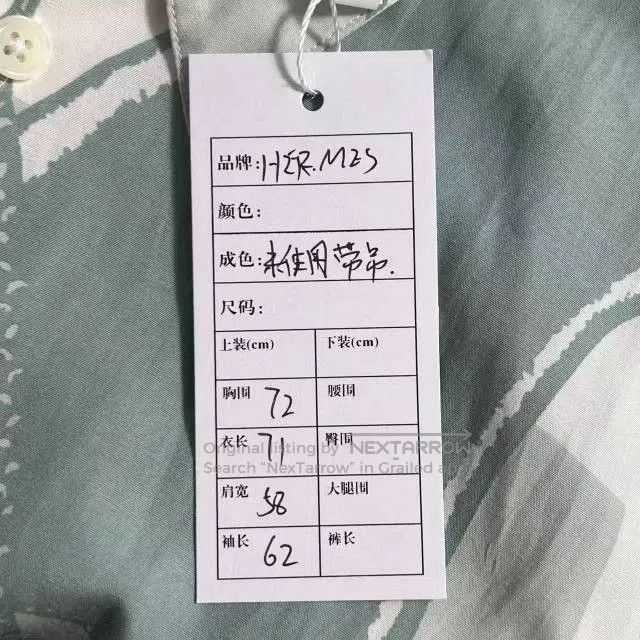 品牌: HER.MES
颜色:
成色: 未使用 带吊.
尺码:
上装(cm) 下装(cm)
胸围 72 腰围
衣长 71 臀围
Original listing by NEXTARROW
Search "NexTarrow" in Grailed a
肩宽 58 大腿围
袖长 62 裤长